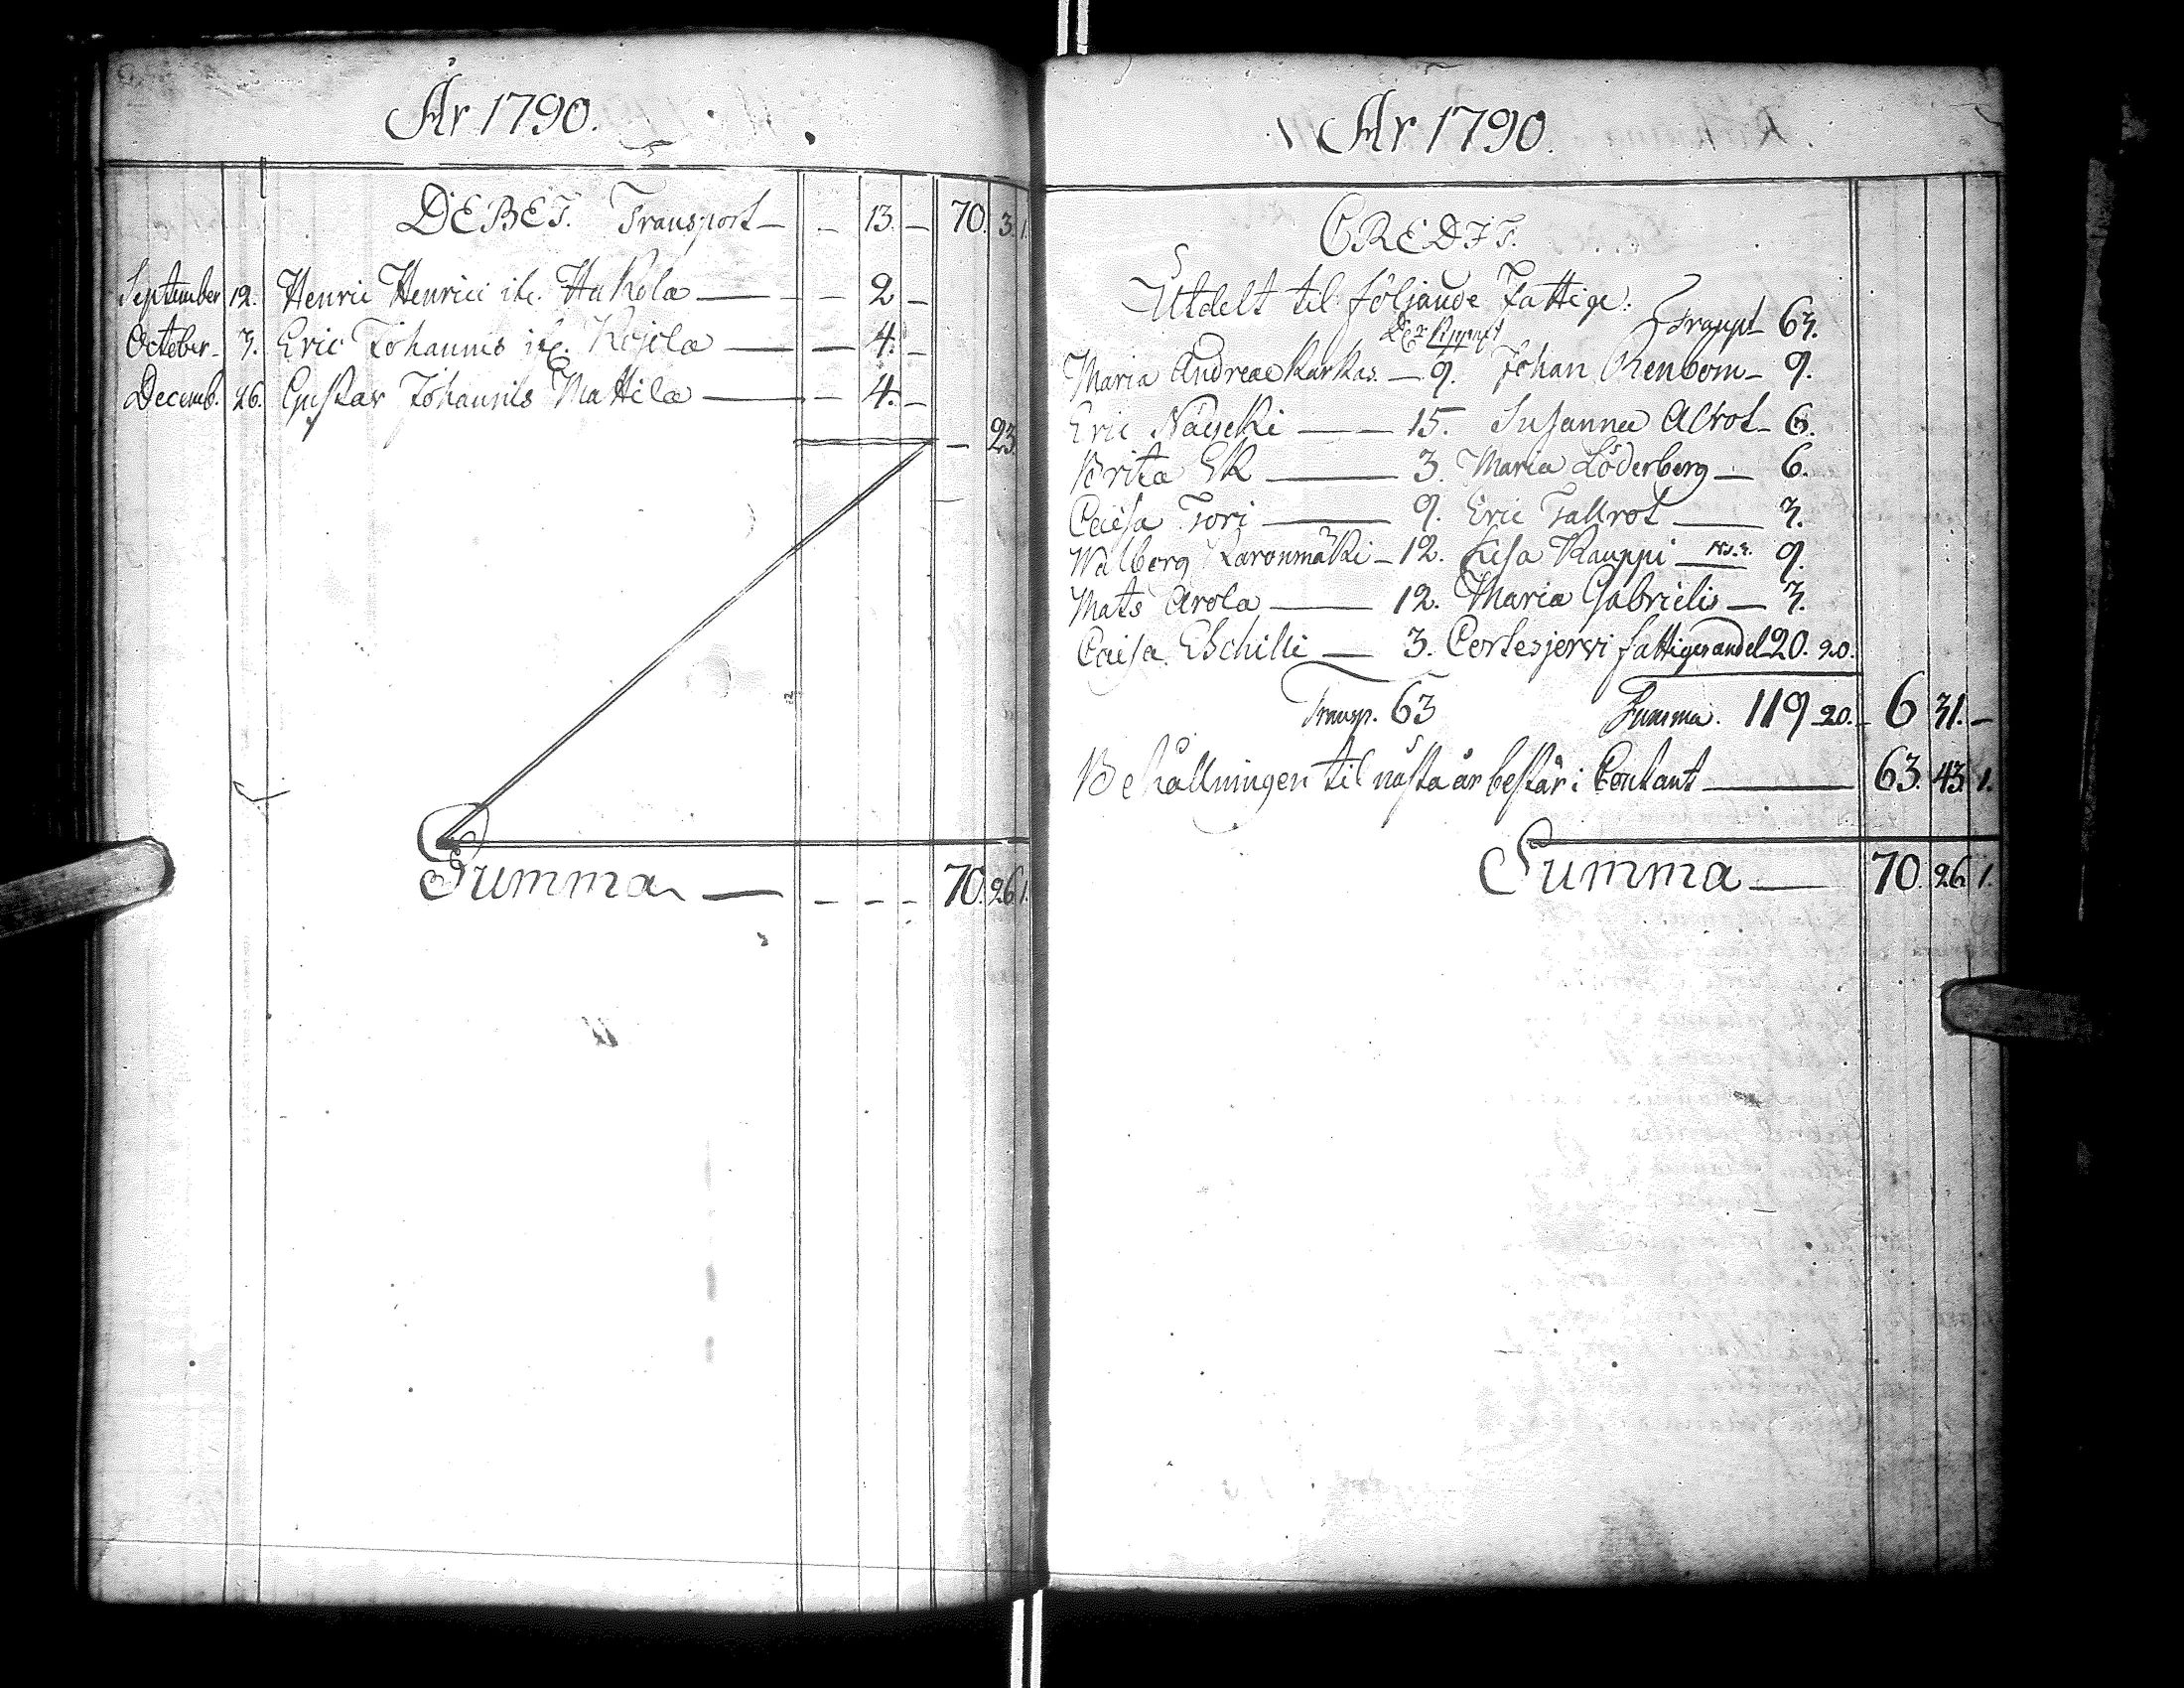 År 1790.
DEBET. Transport — — 13. — 70. 3. 1.
September 12. Henric Henrici Hakola — — 2 —
October 3. Eric Johannis — — 4. —
Decemb. 26. Gustav Johannis Mattila — — 4. —
— 23.
Summa — — — — 70. 26. 1.
År 1790.
CREDIT.
Utdelt til följande Fattige.
Transpt 63.
Maria Andreae Karkas. — 9. Johan Renbom — 9.
Eric Näijeki — 15. Susanna Alrot — 6.
Brita Ek — 3. Maria Löderberg — 6.
Caisa Tori — 9. Eric Tallrot — 3.
Walborg Karonmäki — 12. Lisa Kauppi — 9.
Mats Arola — 12. Maria Gabrielis — 3.
Caisa Eschilli — 3. Cortesjervi fattigas andel 20. 20.
Transp. 63 Summa. 119 20. — 6 31. —
Behållningen til nästa år består i Contant — 63. 43. 1.
Summa — 70. 26. 1.